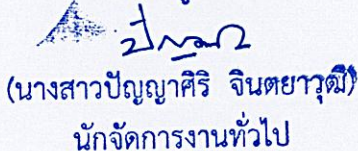 (นางสาวปัญญาศิริ จินตยาวุฒิ)
นักจัดการงานทั่วไป